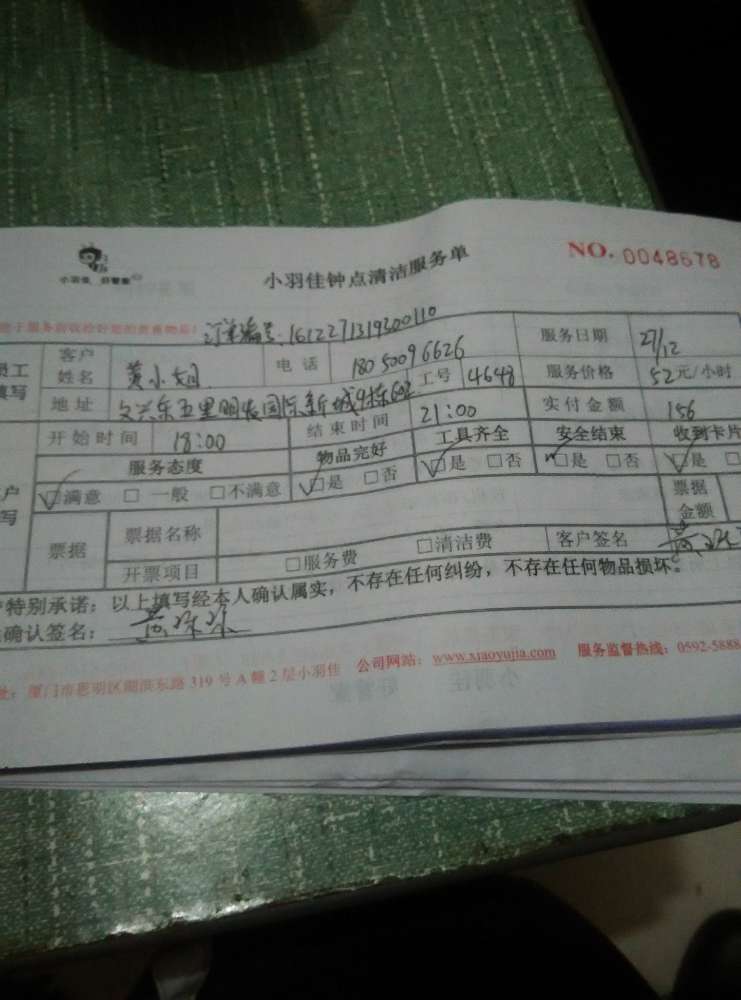 小羽佳 好管家
小羽佳钟点清洁服务单
NO. 0048678
订单编号: 1612271319200110
员工填写
客户姓名 黄小姐 电话 18050096626 服务日期 27/12
地址 文兴东五里明发国际新城9栋602 工号 4648 服务价格 52元/小时
开始时间 18:00 结束时间 21:00 实付金额 156
服务态度 物品完好 工具齐全 安全结束 收到卡片
☑满意 □一般 □不满意 ☑是 □否 ☑是 □否 ☑是 □否 ☑是 □
票据 票据名称 票据金额
开票项目 □服务费 □清洁费 客户签名
特别承诺：以上填写经本人确认属实，不存在任何纠纷，不存在任何物品损坏。
确认签名：
址：厦门市思明区湖滨东路 319 号 A 幢 2 层小羽佳 公司网站：www.xiaoyujia.com 服务监督热线：0592-5888